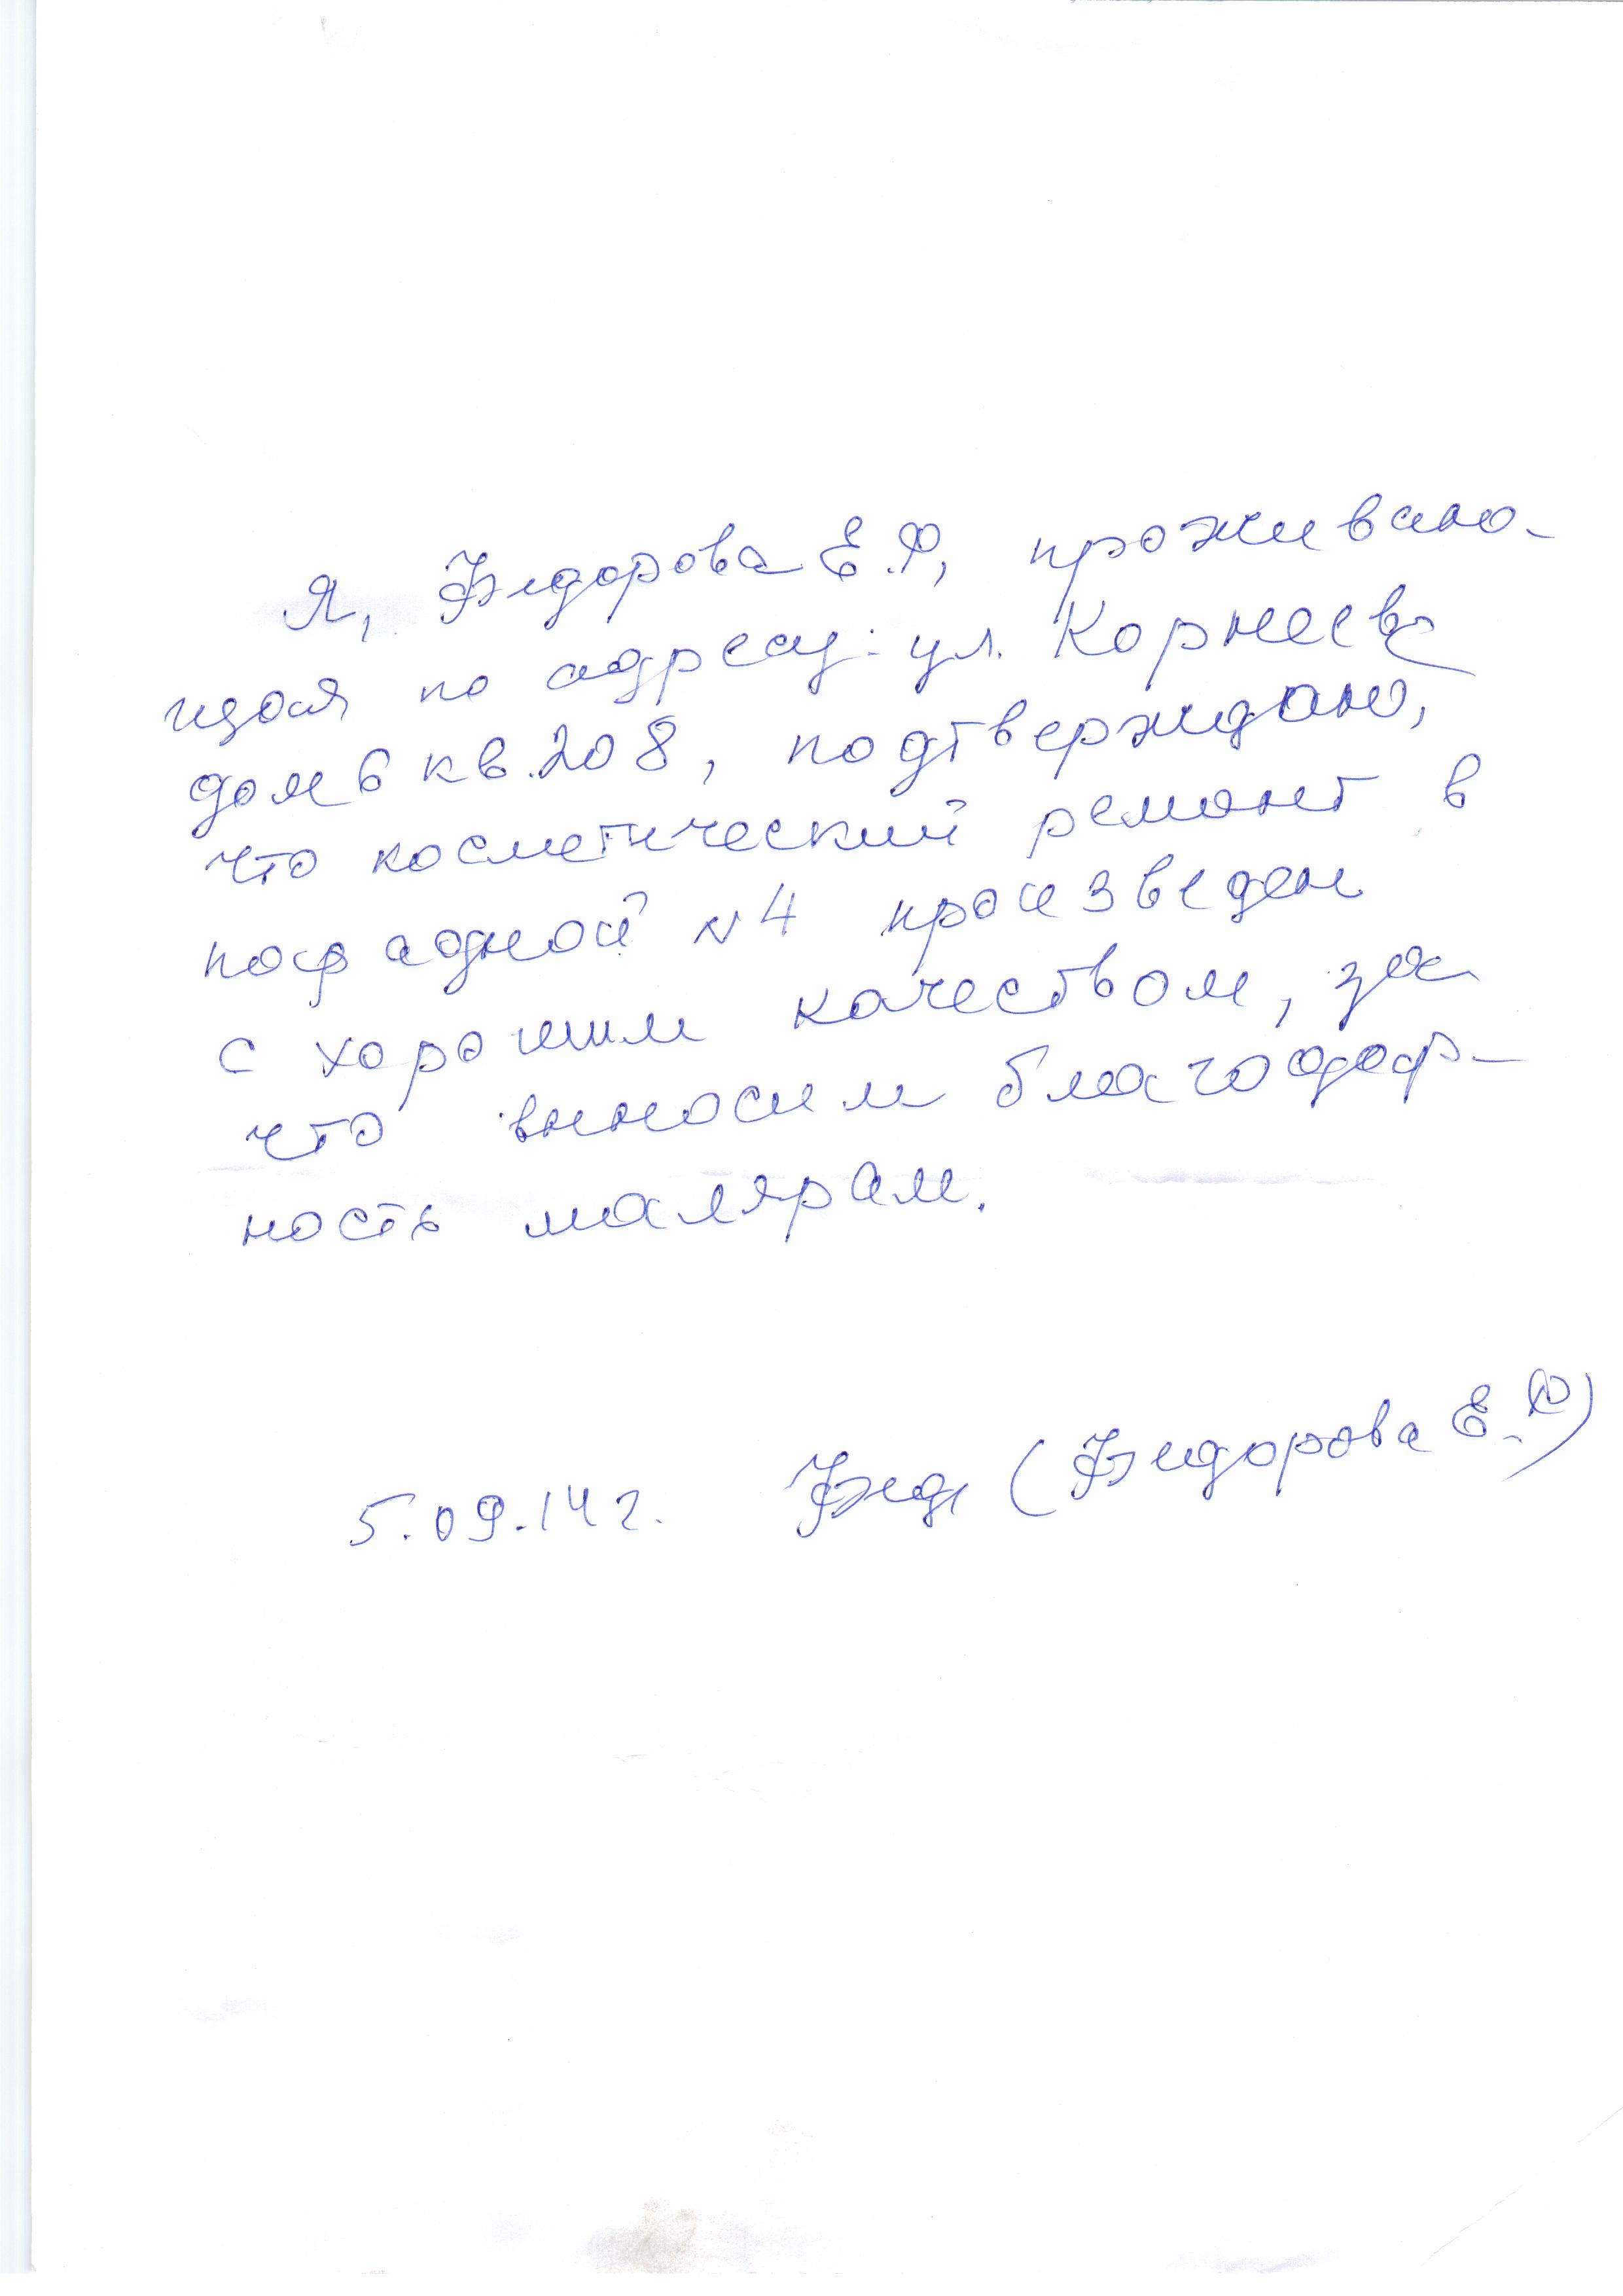 Я, Федорова Е.Ф, проживаю-
щая по адресу: ул. Корнеева
дом 6 кв. 208, подтверждаю,
что косметический ремонт в
парадной №4 произведен
с хорошим качеством, за
что выносим благодар-
ность малярам.
5.09.14 г. Фед, (Федорова Е.Ф)